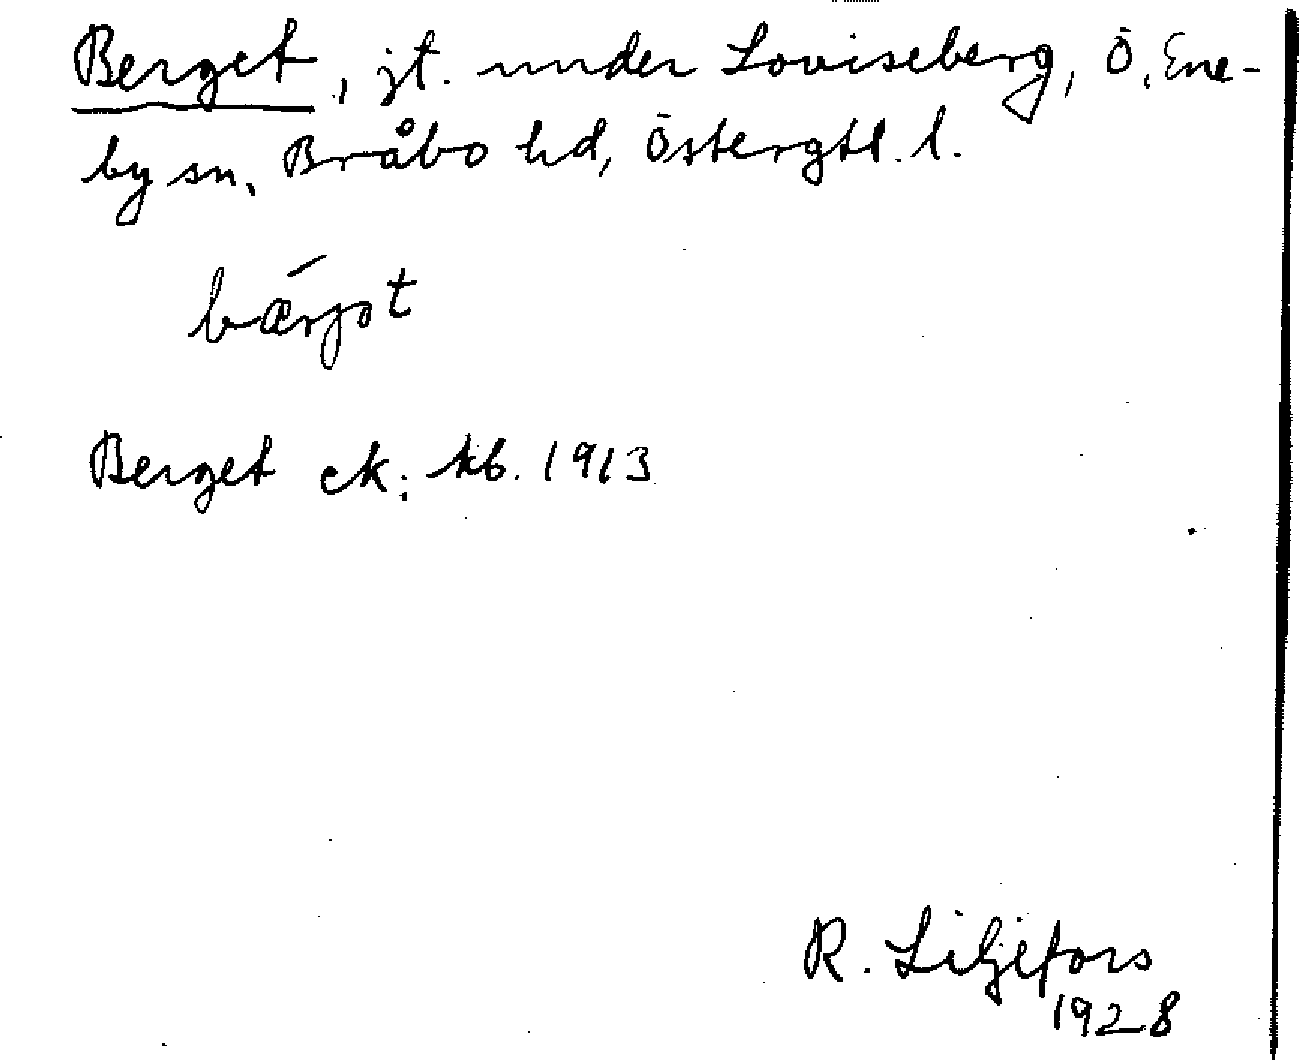 Berget, jt. under Loviseberg, Ö. Ene-
by sn, Bråbo hd, Östergtl. l.
bærjot
Berget ek; kb. 1913
R. Liljefors
1928